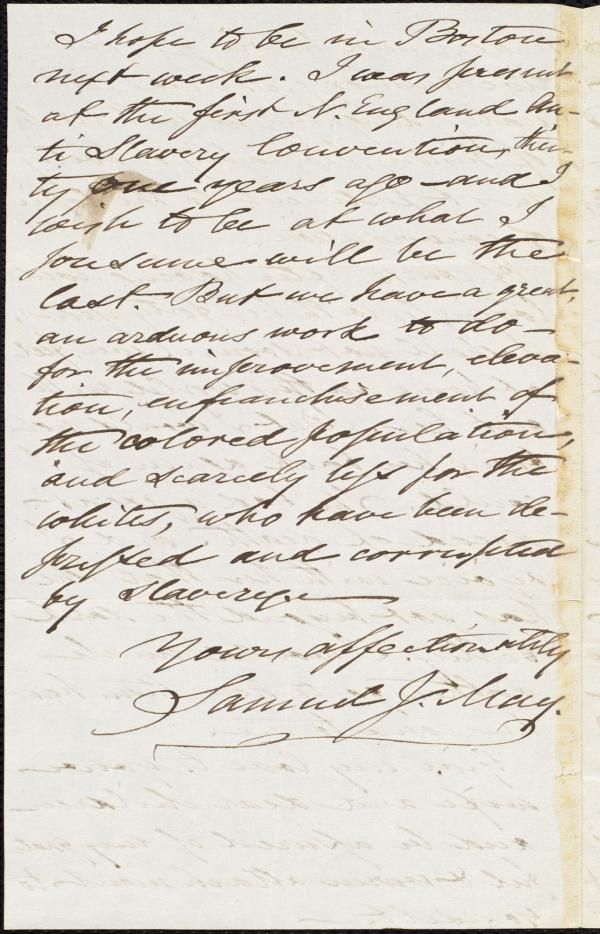 I hope to be in Boston
next week. I was present
at the first N. England An-
ti Slavery Convention, thir-
ty one years ago - and I
wish to be at what I
presume will be the
last. But we have a great,
an arduous work to do -
for the improvement, eleva-
tion, enfranchisement of
the colored population,
and scarcely less for the
whites, who have been de-
pressed and corrupted
by Slavery.
Yours affectionately
Samuel J. May.